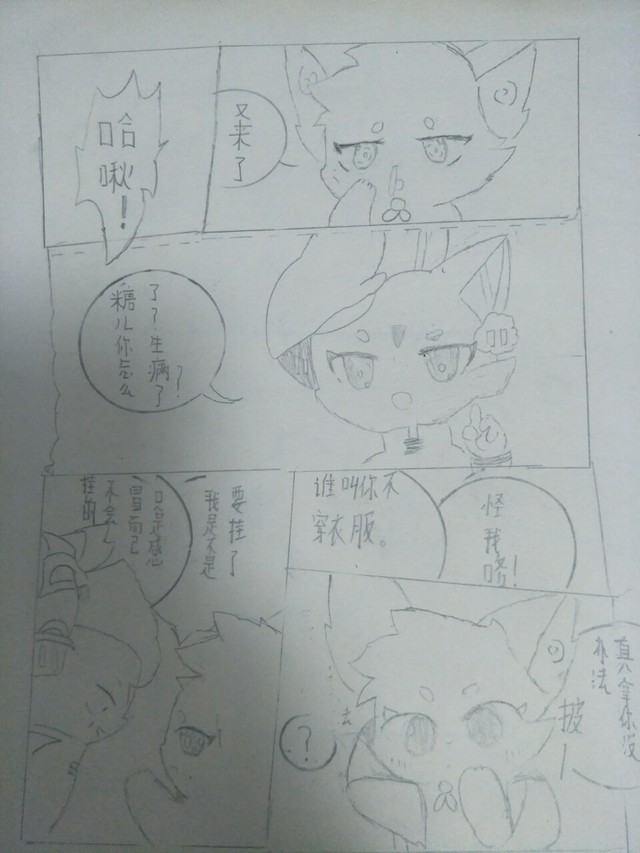 哈啾！
又来了
糖儿你怎么
了？生病了？
我是不是
要挂了
只是感
冒而已
不会
挂的
谁叫你不
穿衣服。
怪我咯！
真拿你没
办法
披
？